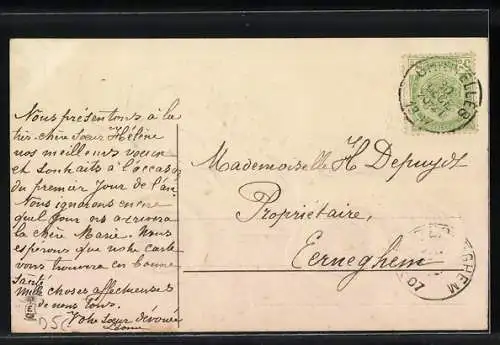 Nous présentons à la
très chère Sœur Hélène
nos meilleurs vœux
et souhaits à l'occasion
du premier Jour de l'an.
Nous ignorons encore
quel Jour va arrivera
la chère Marie. Nous
espérons que notre carte
vous trouvera en bonne
santé
Mille choses affectueuses
de nous tous.
Votre sœur dévouée
Mademoiselle H Depuydt
Propriétaire,
Eerneghem
07